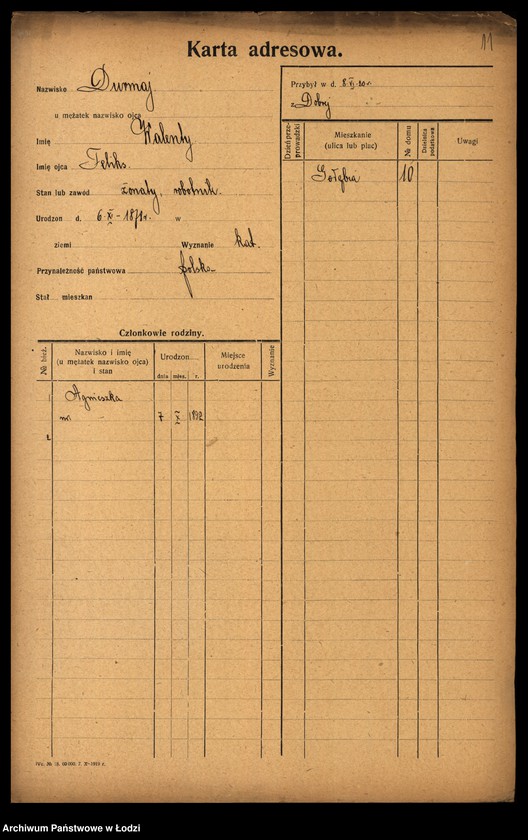 11
Karta adresowa.
Nazwisko Durmaj
u mężatek nazwisko ojca
Imię Walenty
Imię ojca Feliks
Stan lub zawód żonaty, robotnik.
Urodzon d. 6 XI - 1871 r. w
ziemi Wyznanie kat.
Przynależność państwowa polska
Stał. mieszkan
Członkowie rodziny.
№ bież. Nazwisko i imię (u mężatek nazwisko ojca) i stan Urodzon dnia mies. r. Miejsce urodzenia Wyznanie
1 Agnieszka
7 X 1892
2.
Przybył w d. 8. VI. 20 r.
z Dobrej
Dzień przeprowadzki Mieszkanie (ulica lub plac) № domu Dzielnica podatkowa Uwagi
Gołębia 10
Archiwum Państwowe w Łodzi